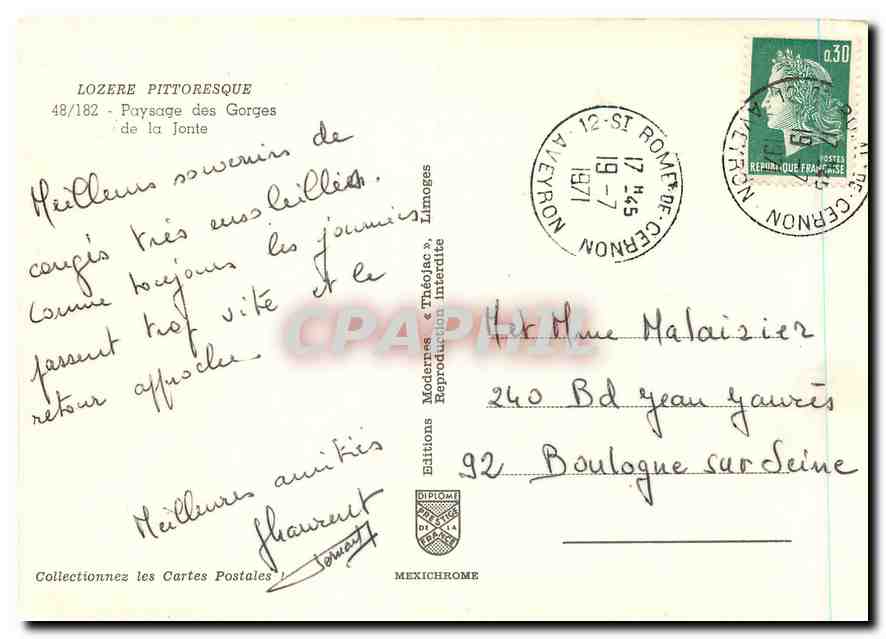 LOZERE PITTORESQUE
48/182 - Paysage des Gorges
de la Jonte
Meilleurs souvenirs de
congés très ensoleillés.
Comme toujours les journées
passent trop vite et le
retour approche
Meilleures amitiés
Collectionnez les Cartes Postales !
Editions Modernes « Théojac », Limoges
Reproduction Interdite
DIPLOME
PRESTIGE
DE LA
FRANCE
MEXICHROME
12-ST ROME-DE-CERNON
17 H 45
19-7
1971
AVEYRON
0,30
POSTES
REPUBLIQUE FRANÇAISE
CPAPHIL
M et Mme Malaizier
240 Bd Jean Jaurès
92 Boulogne sur Seine